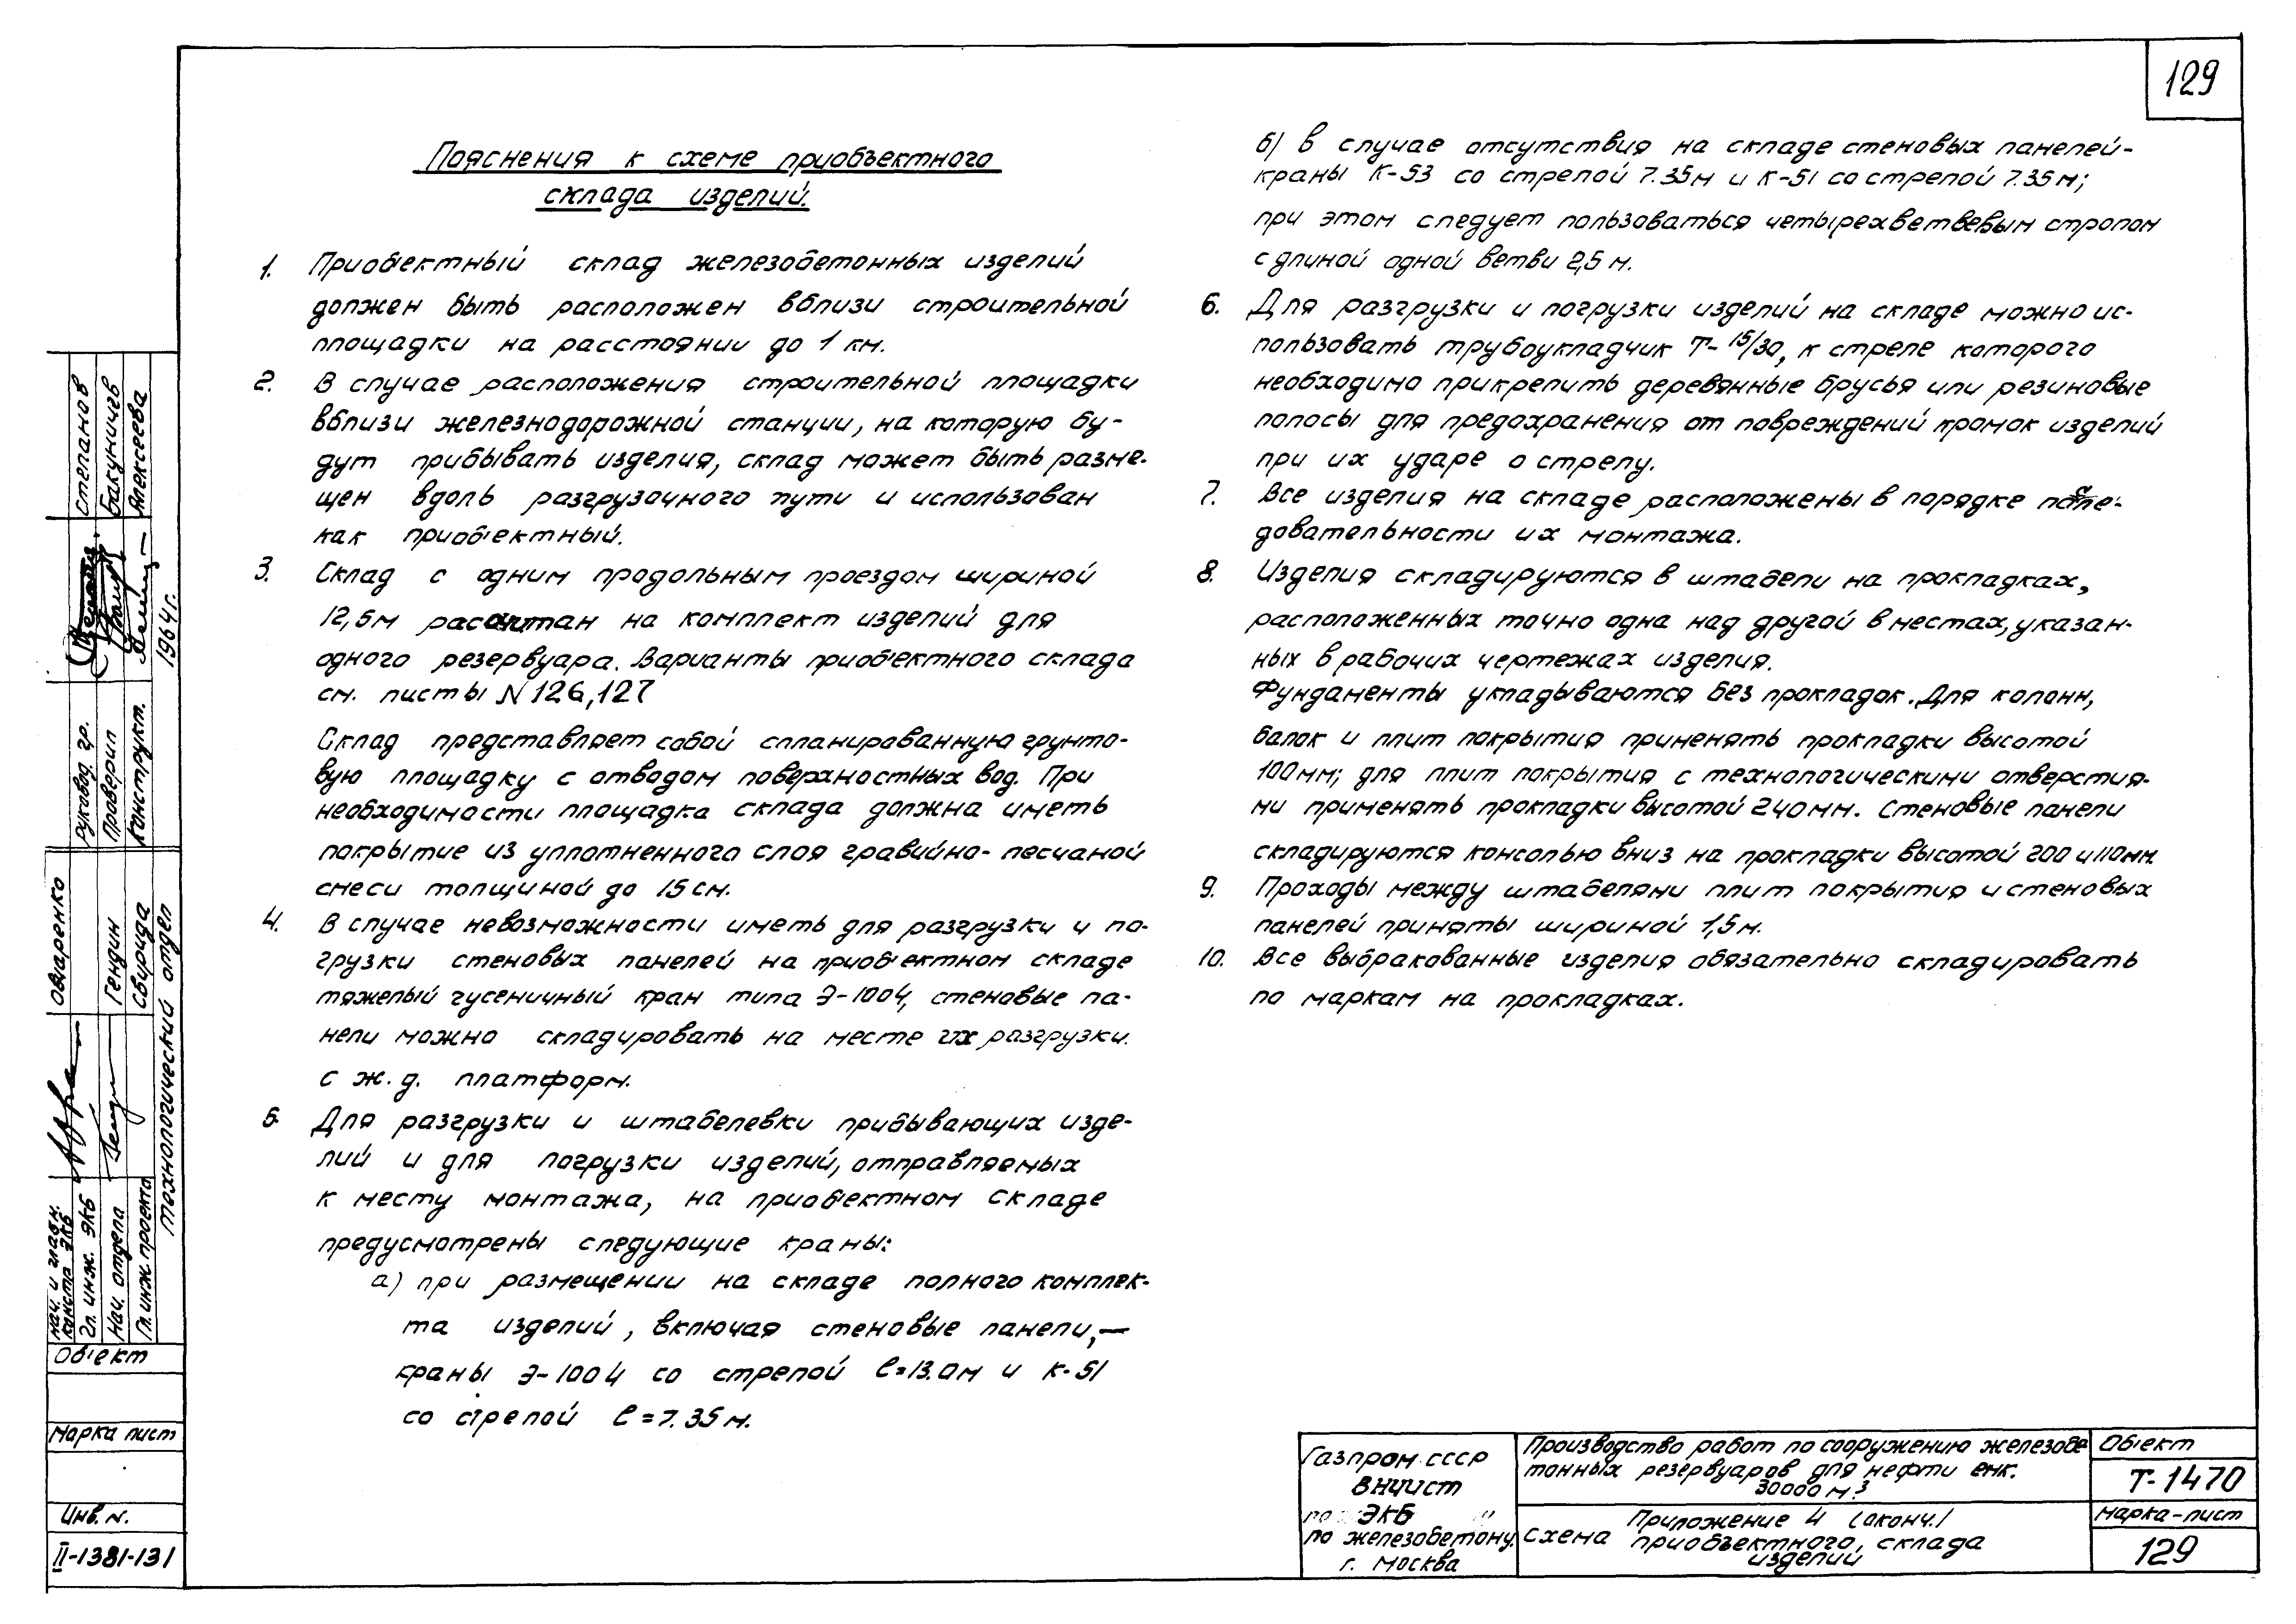 129
Пояснения к схеме приобъектного
склада изделий.
1. Приобъектный склад железобетонных изделий
должен быть расположен вблизи строительной
площадки на расстоянии до 1 км.
2. В случае расположения строительной площадки
вблизи железнодорожной станции, на которую бу-
дут прибывать изделия, склад может быть разме-
щен вдоль разгрузочного пути и использован
как приобъектный.
3. Склад с одним продольным проездом шириной
12,5м рассчитан на комплект изделий для
одного резервуара. Варианты приобъектного склада
см. листы N 126,127
Склад представляет собой спланированную грунто-
вую площадку с отводом поверхностных вод. При
необходимости площадка склада должна иметь
покрытие из уплотненного слоя гравийно-песчаной
смеси толщиной до 15 см.
4. В случае невозможности иметь для разгрузки и по-
грузки стеновых панелей на приобъектном складе
тяжелый гусеничный кран типа Э-1004, стеновые па-
нели можно складировать на месте их разгрузки.
с ж.д. платформ.
5. Для разгрузки и штабелевки прибывающих изде-
лий и для погрузки изделий, отправляемых
к месту монтажа, на приобъектном складе
предусмотрены следующие краны:
а) при размещении на складе полного комплек-
та изделий, включая стеновые панели,—
краны Э-1004 со стрелой ℓ=13.0м и К-51
со стрелой ℓ=7.35м.
б) в случае отсутствия на складе стеновых панелей-
краны К-53 со стрелой 7.35м и К-51 со стрелой 7.35м;
при этом следует пользоваться четырехветвевым стропом
с длиной одной ветви 2,5 м.
6. Для разгрузки и погрузки изделий на складе можно ис-
пользовать трубоукладчик Т-15/30, к стреле которого
необходимо прикрепить деревянные брусья или резиновые
полосы для предохранения от повреждений кромок изделий
при их ударе о стрелу.
7. Все изделия на складе расположены в порядке после-
довательности их монтажа.
8. Изделия складируются в штабели на прокладках,
расположенных точно одна над другой в местах, указан-
ных в рабочих чертежах изделия.
Фундаменты укладываются без прокладок. Для колонн,
балок и плит покрытия применять прокладки высотой
100мм; для плит покрытия с технологическими отверстия-
ми применять прокладки высотой 240мм. Стеновые панели
складируются консолью вниз на прокладки высотой 200 и 110мм.
9. Проходы между штабелями плит покрытия и стеновых
панелей приняты шириной 1,5м.
10. Все выбракованные изделия обязательно складировать
по маркам на прокладках.
Газпром СССР
ВНИИСТ
ЭКБ
по железобетону
г. Москва
Производство работ по сооружению железобе
тонных резервуаров для нефти емк.
30000 м³
Приложение 4 (оконч.)
Схема приобъектного, склада
изделий
Объект
Т-1470
Марка-лист
129
Степанов
Бакуничев
Алексеева
1964г.
Руковод гр.
Проверил
Конструкт.
Овчаренко
Гендин
Свирида
Технологический отдел
Нач. и главн.
констр ЭКБ
Гл. инж. ЭКБ
Нач. отдела
Гл. инж. проекта
Объект
Марка лист
Инв. N.
II-1381-131